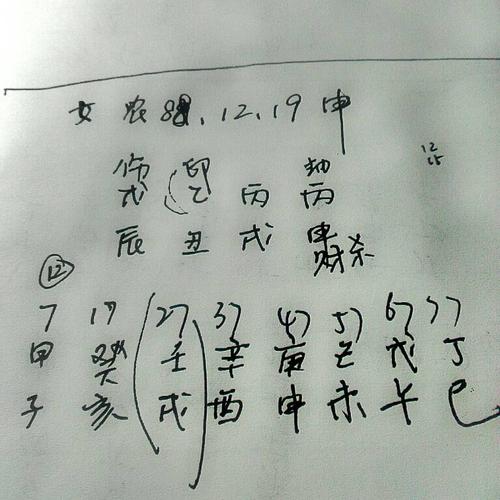 女 农 88.12.19 申
12
15
伤 印 劫
戊 乙 丙 丙
辰 丑 戌 申
财 杀
12
7 17 27 37 47 57 67 77
甲 癸 壬 辛 庚 己 戊 丁
子 亥 戌 酉 申 未 午 巳